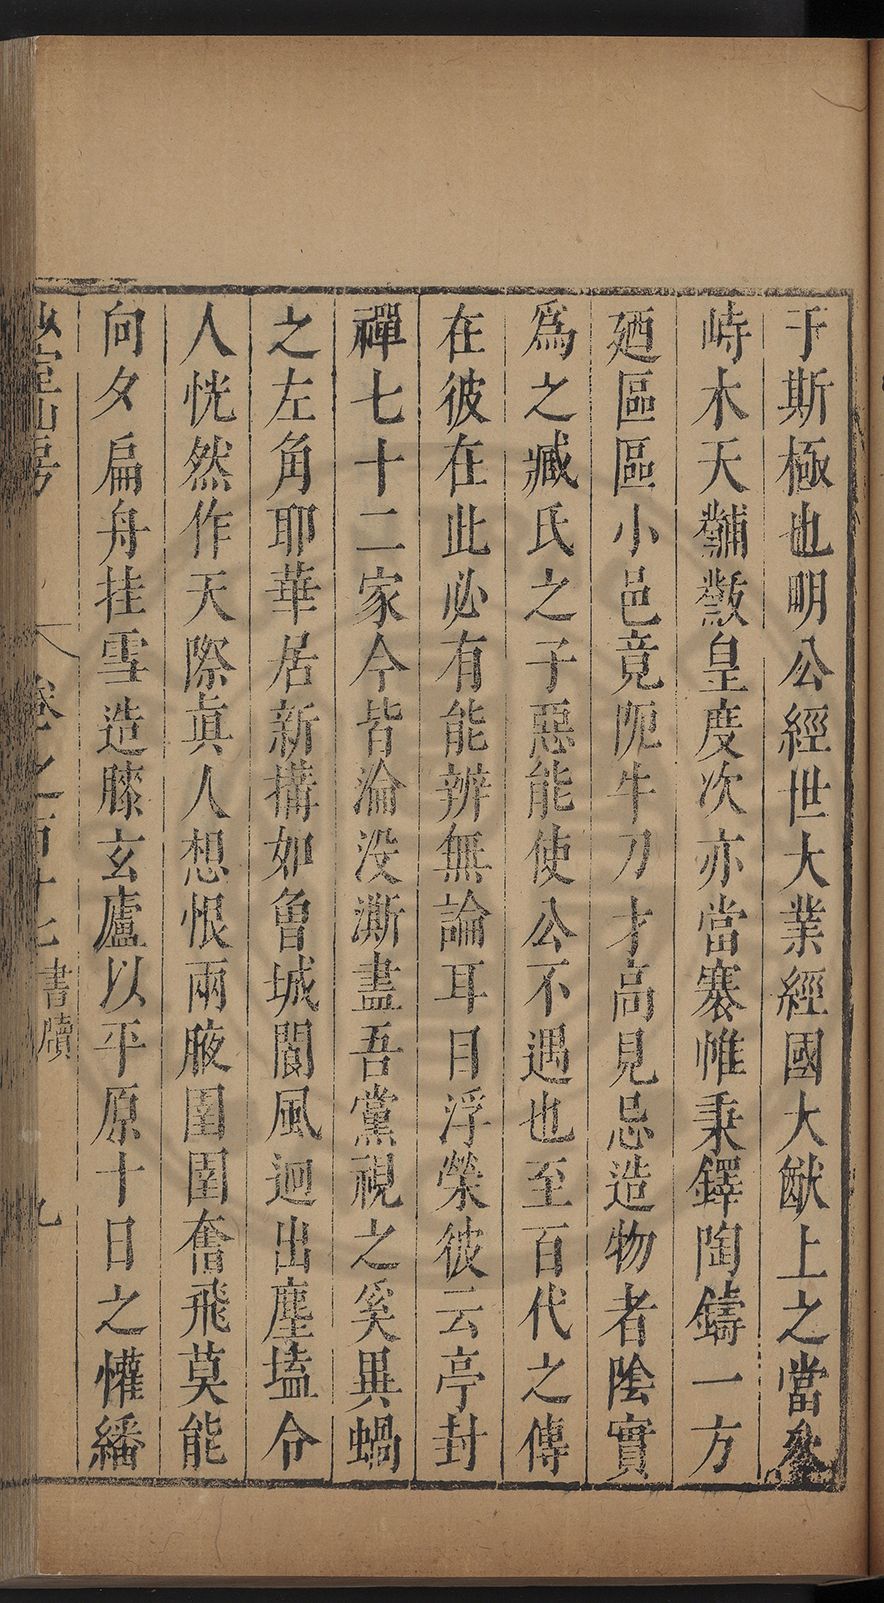 于斯極也明公經世大業經國大猷上之當
峙木天黼黻皇度次亦當褰帷秉鐸陶鑄一方
廼區區小邑竟阨牛刀才高見忌造物者陰實
爲之臧氏之子惡能使公不遇也至百代之傳
在彼在此必有能辨無論耳目浮榮彼云亭封
禪七十二家今皆淪没澌盡吾黨視之奚異蝸
之左角耶華居新搆如魯城閬風迥出塵壒令
人恍然作天際眞人想恨兩腋圉圉奮飛莫能
向夕扁舟挂雪造膝玄廬以平原十日之懽繙
少室山房 卷之百十七 書牘 九